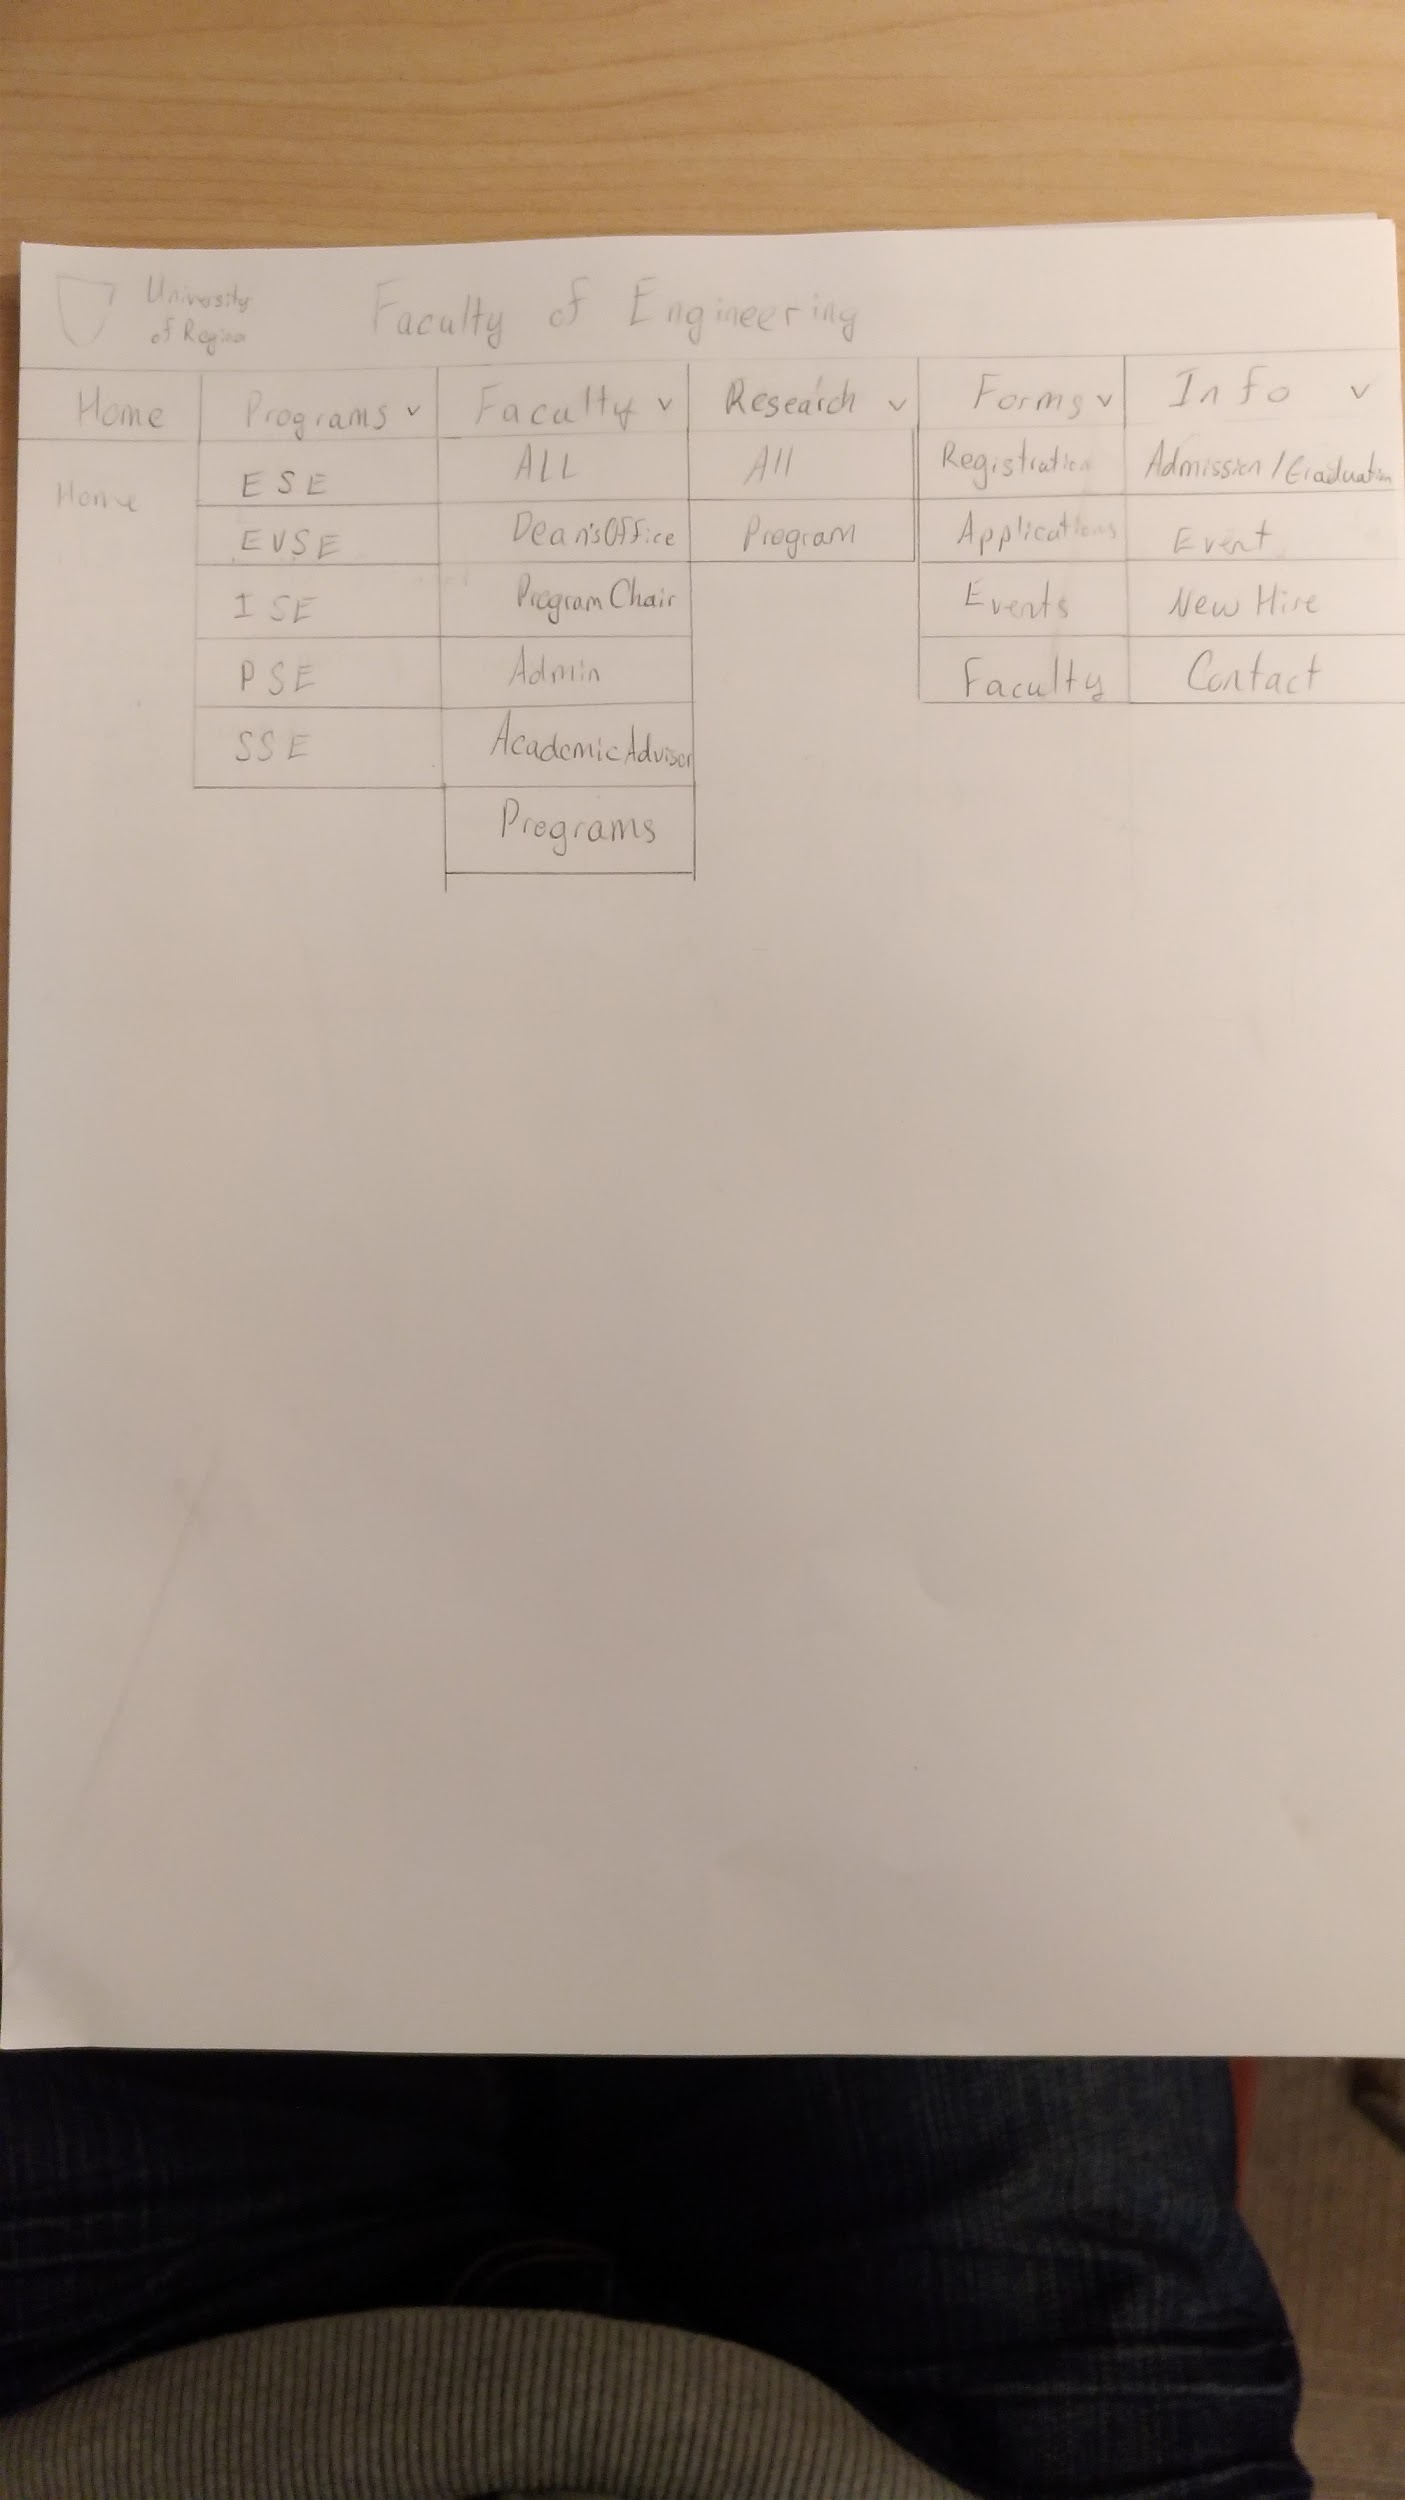 University
of Regina
Faculty of Engineering
Home Programs v Faculty v Research v Forms v Info v
ESE ALL All Registration Admission/Graduation
Home
EVSE Dean's Office Program Applications Event
ISE Program Chair Events New Hire
PSE Admin Faculty Contact
SSE Academic Advisor
Programs